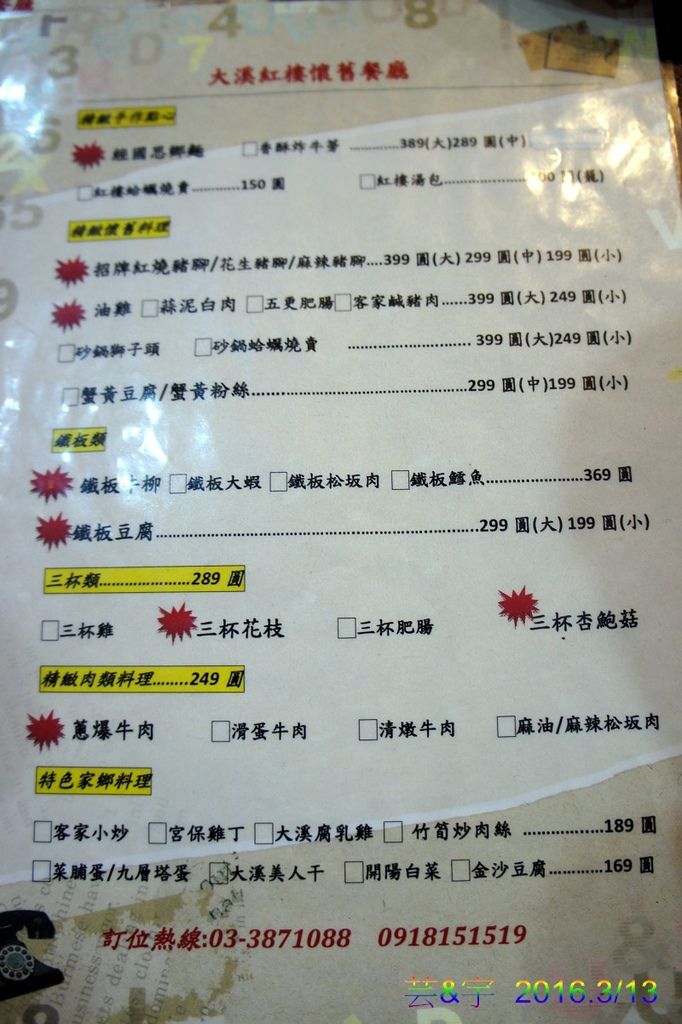 大溪紅樓懷舊餐廳
精緻手作點心
經國思鄉麵 □香酥炸牛蒡 ..........389(大)289 圓(中)
□紅樓蛤蠣燒賣............150 圓 □紅樓湯包
精緻懷舊料理
招牌紅燒豬腳/花生豬腳/麻辣豬腳....399 圓(大) 299 圓(中) 199 圓(小)
油雞 □蒜泥白肉 □五更肥腸□客家鹹豬肉......399 圓(大) 249 圓(小)
□砂鍋獅子頭 □砂鍋蛤蠣燒賣 ............................ 399 圓(大)249 圓(小)
□蟹黃豆腐/蟹黃粉絲................................................299 圓(中)199 圓(小)
鐵板類
鐵板牛柳 □鐵板大蝦 □鐵板松坂肉 □鐵板鱈魚......................369 圓
鐵板豆腐........................................................................299 圓(大) 199 圓(小)
三杯類......................289 圓
□三杯雞 三杯花枝 □三杯肥腸 三杯杏鮑菇
精緻肉類料理........249 圓
蔥爆牛肉 □滑蛋牛肉 □清燉牛肉 □麻油/麻辣松坂肉
特色家鄉料理
□客家小炒 □宮保雞丁 □大溪腐乳雞 □ 竹筍炒肉絲 ..................189 圓
□菜脯蛋/九層塔蛋 □大溪美人干 □開陽白菜 □金沙豆腐............169 圓
訂位熱線:03-3871088 0918151519
芸&宇 2016.3/13